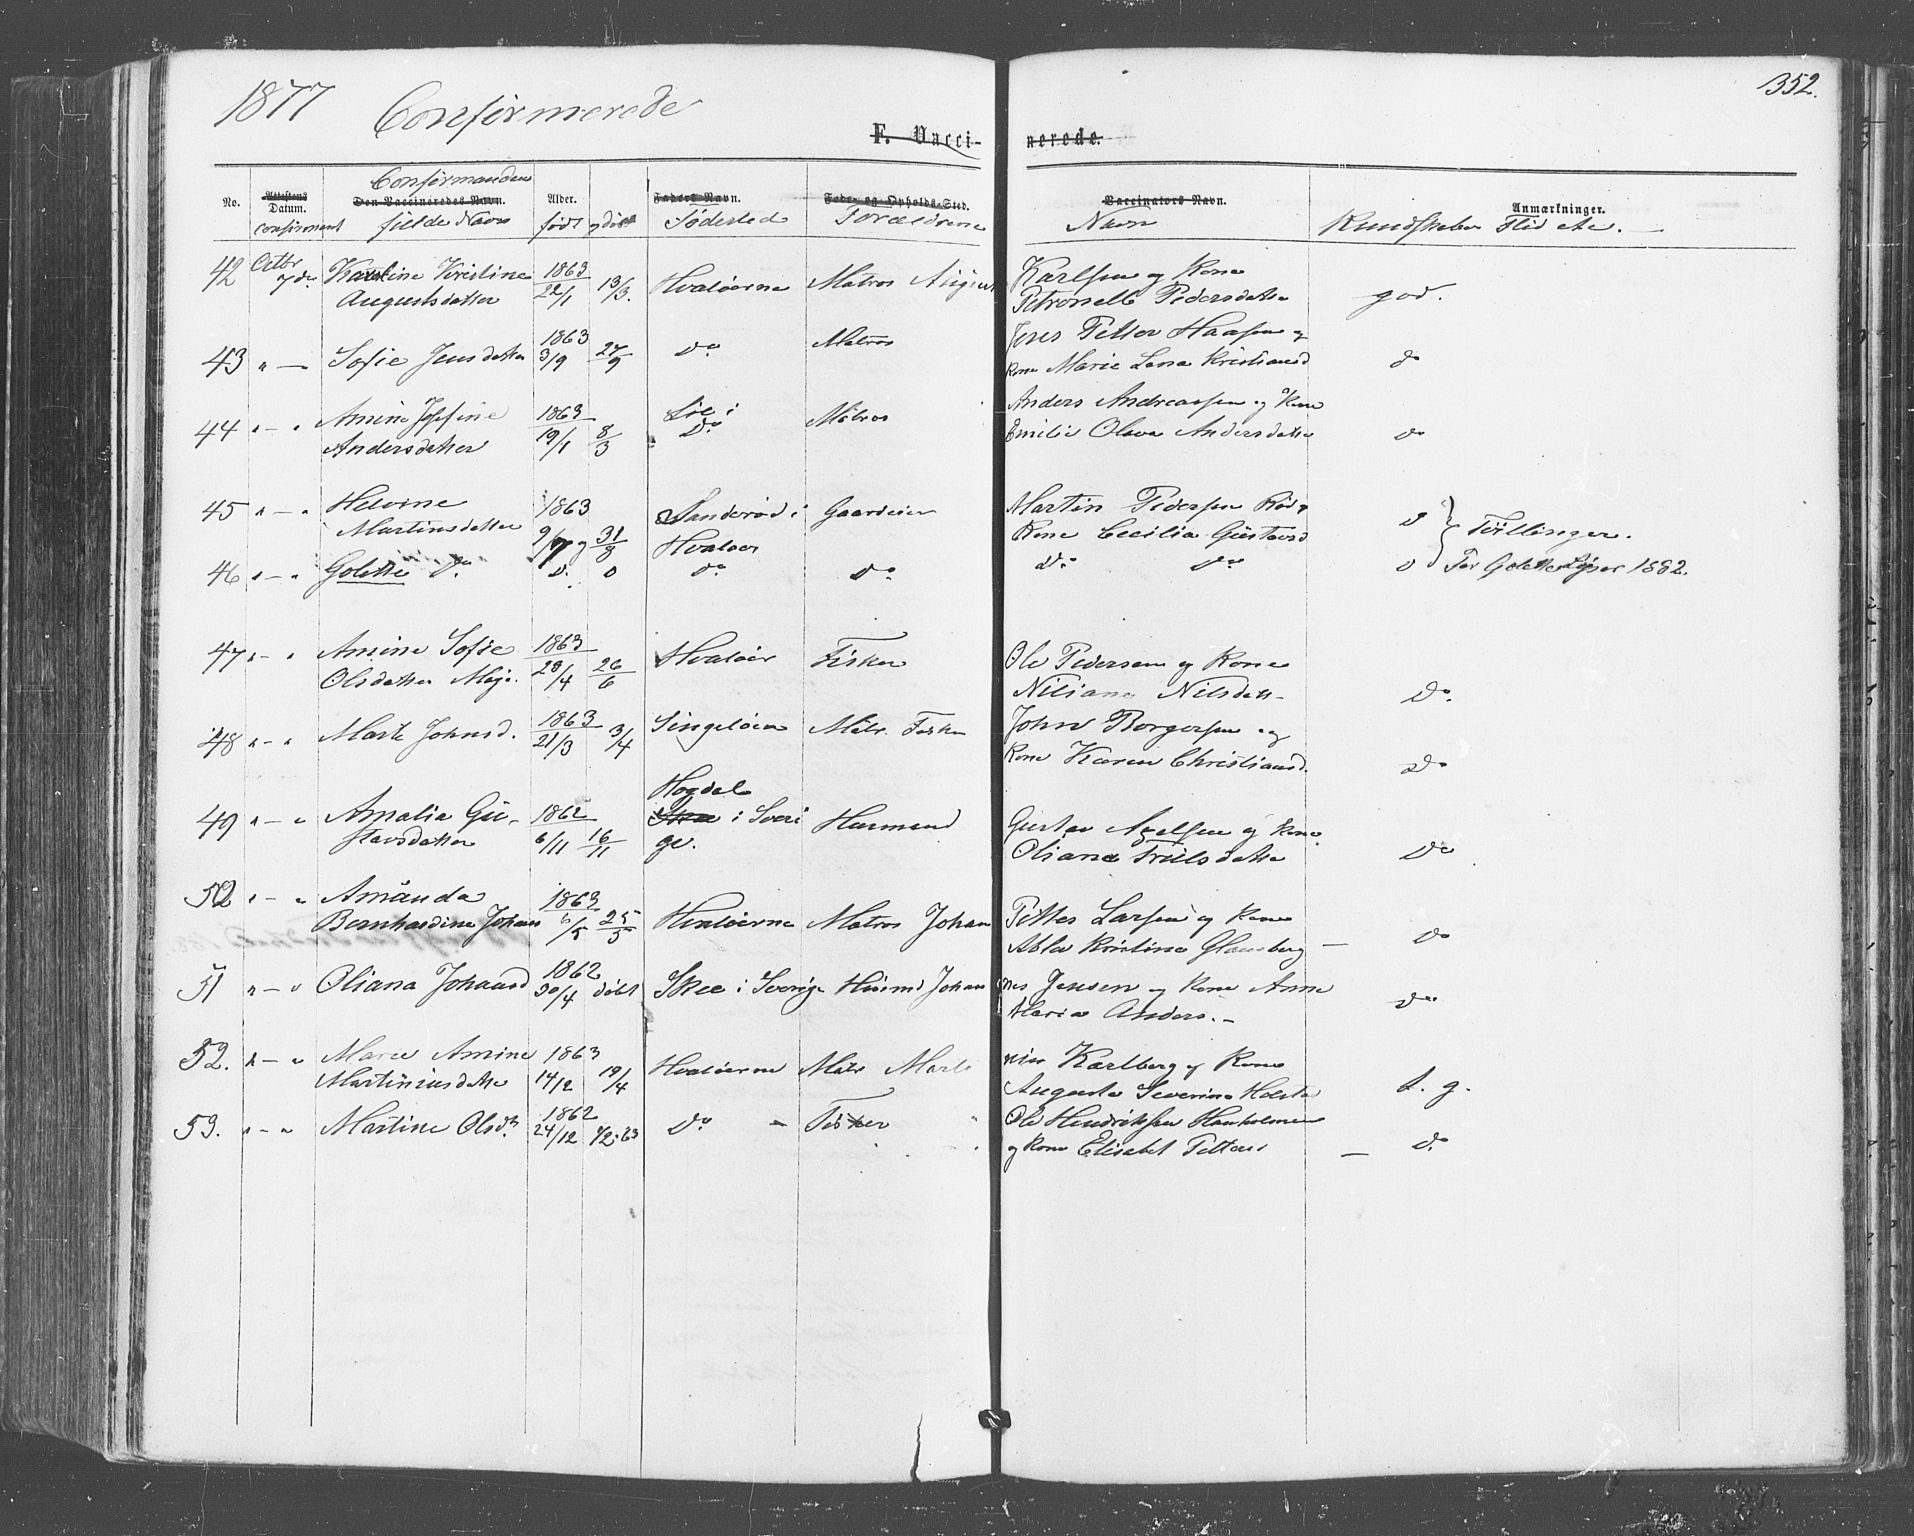 1877 Confirmerede 352.
F. Vacci- nerede.
No. Attestens Datum. confirment Confirmandens Den Vaccineredes Navn. fulde Navn Alder. født og døbt Faders Navn. Fødested Føde- og Opholds-Sted. Forældrene Vaccinators Navn. Navn Kundskaber Flid etc. Anmærkninger.
42 Octbr 7de Karoline Kristine 1863 Hvaløerne Matros August Karlsen og Kone
Augustsdatter 22/1 13/3. Petronelle Pedersdatter god.
43 " — Sofie Jensdatter 1863 3/9 27/9 do Matros Jens Petter Hansen og
Kone Marie Lena Kristiansd do
44 " - " Amine Josefine 1863 i Matros Anders Andreassen og Kone
Andersdatter 19/1 8/3 do Emilie Olava Andersdatter do
45 " - " Helvine 1863 Sanderød i Gaardeier Martin Pedersen Rød og
Martinsdatter 9/7 og 31/8 Hvaløer Kone Cecilia Gustavsd d Tvillinger.
46 " - " Golette do d. d do do. do. do d For Golette 1882.
47 " - " Amine Sofie 1863 Hvaløer Fisker Ole Pedersen og Kone
Olsdatter 29/4 26/6 Niliane Nilsdatt- do.
48 " - " Marte Johnsd. 1863 21/3 3/4 Singeløen Matr. Fisker John Borgersen og
Kone Karen Christiansd. do
49 " - " Amalia Gu- 1862 Hogdal i Sveri Husmand Gustav Axelsen og Kone
stavsdatter 6/11 16/11 ge. Oliane Truls datter do
50 " - " Amanda 1863 Petter Larsen og Kone
Bernhardine Johans 6/5 25/5 Hvaløerne Matros Johan Abla Kristine — do
51 " - " Oliana Johansd 1862 30/4 døbt Skee i Sverige Husmd Johan nes Jensen og Kone Anne
Maria Anders. - do
52. " - " Maren Amine 1863 Hvaløerne Matr Marti nius Karlberg og Kone
Martiniusdatter 14/2 19/4 Augusta Severine t. g.
53. " - " Martine Olsdr 1862 24/12 1/2-63 do - Fisker Ole Hendriksen
og Kone Elisabet Petters — do.